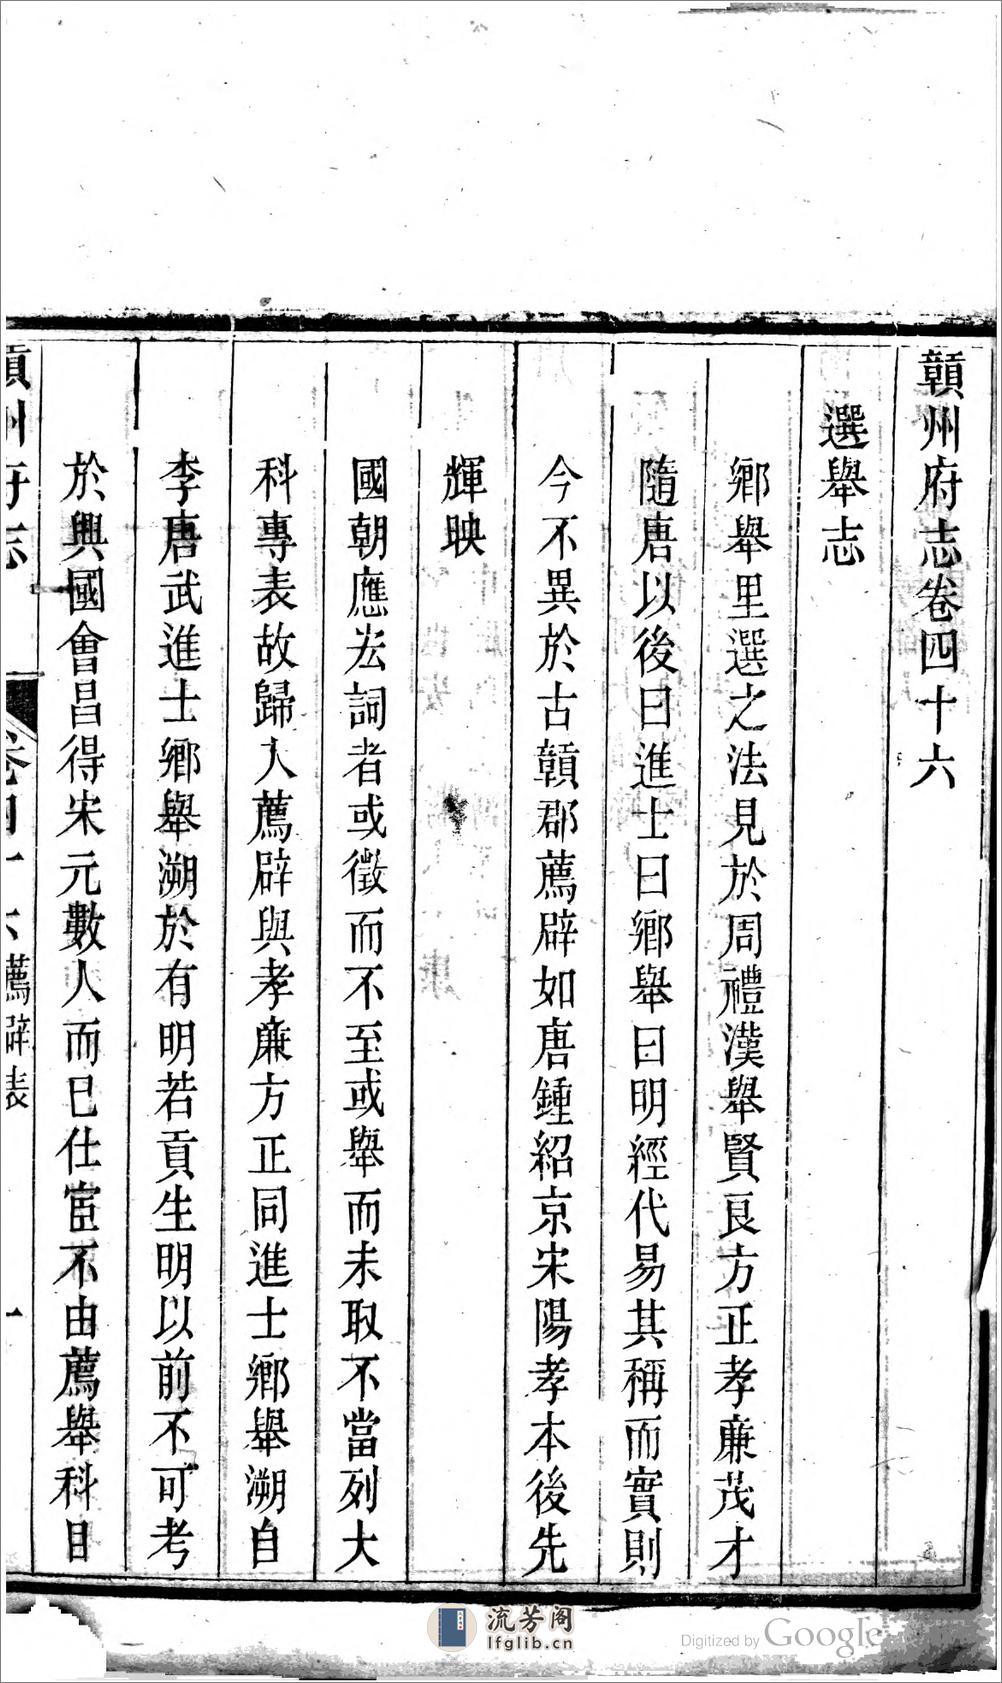 贛州府志卷四十六
選舉志
鄉舉里選之法見於周禮漢舉賢良方正孝廉茂才
隨唐以後曰進士曰鄉舉曰明經代易其稱而實則
今不異於古贛郡薦辟如唐鍾紹京宋陽孝本後先
輝映
國朝應宏詞者或徵而不至或舉而未取不當列大
科專表故歸入薦辟與孝廉方正同進士鄉舉溯自
李唐武進士鄉舉溯於有明若貢生明以前不可考
於興國會昌得宋元數人而已仕宦不由薦舉科目
贛州府志
卷四十六薦辟表
一
流芳阁
lfglib.cn
Digitized by Google